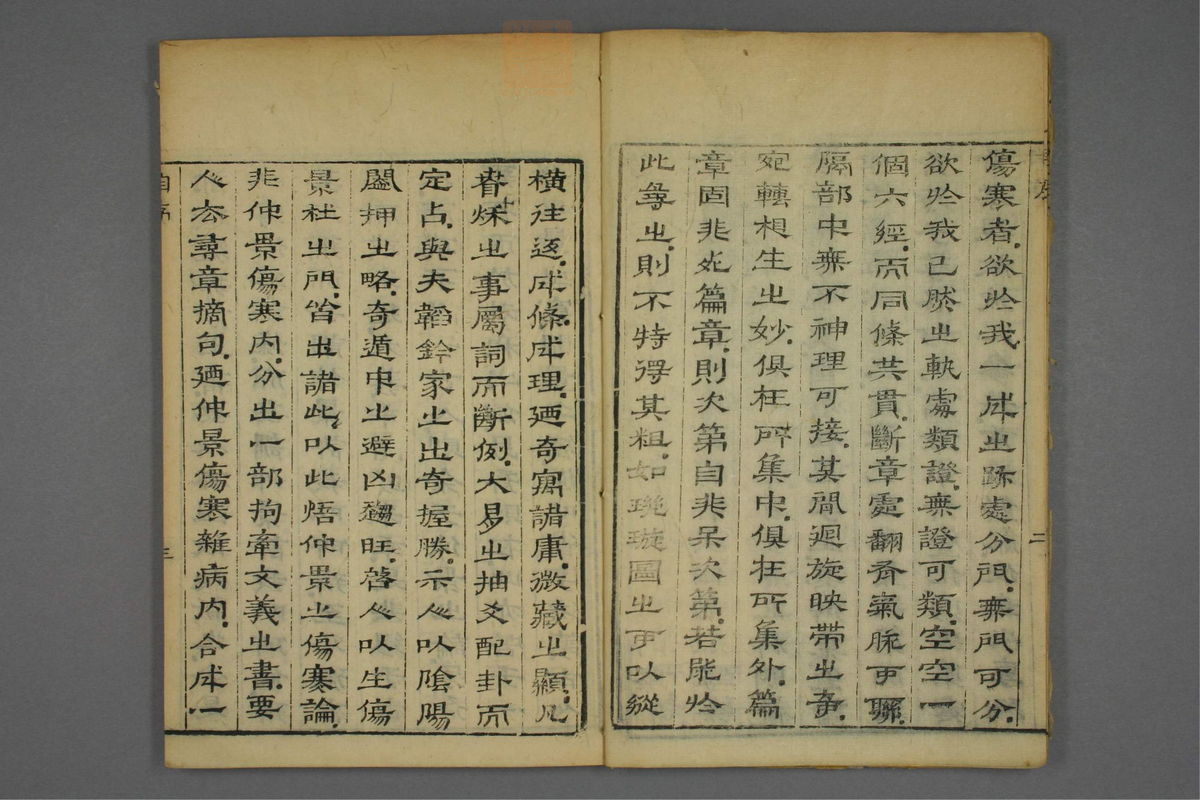 自序
二
傷寒者。欲於我一成之跡處分門。無門可分。
欲於我已然之軌處類證。無證可類。空空一
個六經。而同條共貫。斷章處翻有氣脉可聯。
隔部中無不神理可接。其間迴旋映帶之奇。
宛轉相生之妙。俱在所集中。俱在所集外。篇
章固非死篇章。則次第自非呆次第。若能於
此尋之。則不特得其粗。如璣璇圖之可以縱
橫往返。成條成理。廼奇寓諸庸。微藏之顯。凡
春秋之事屬詞而斷例。大易之抽爻配卦而
定占。與夫韜鈐家之出奇握勝。示人以陰陽
闔押之略。奇遁中之避凶趨旺。啓人以生傷
景杜之門。皆出諸此。以此悟仲景之傷寒論。
非仲景傷寒內。分出一部拘牽文義之書。要
人去尋章摘句。廼仲景傷寒雜病內。合成一
自序
三